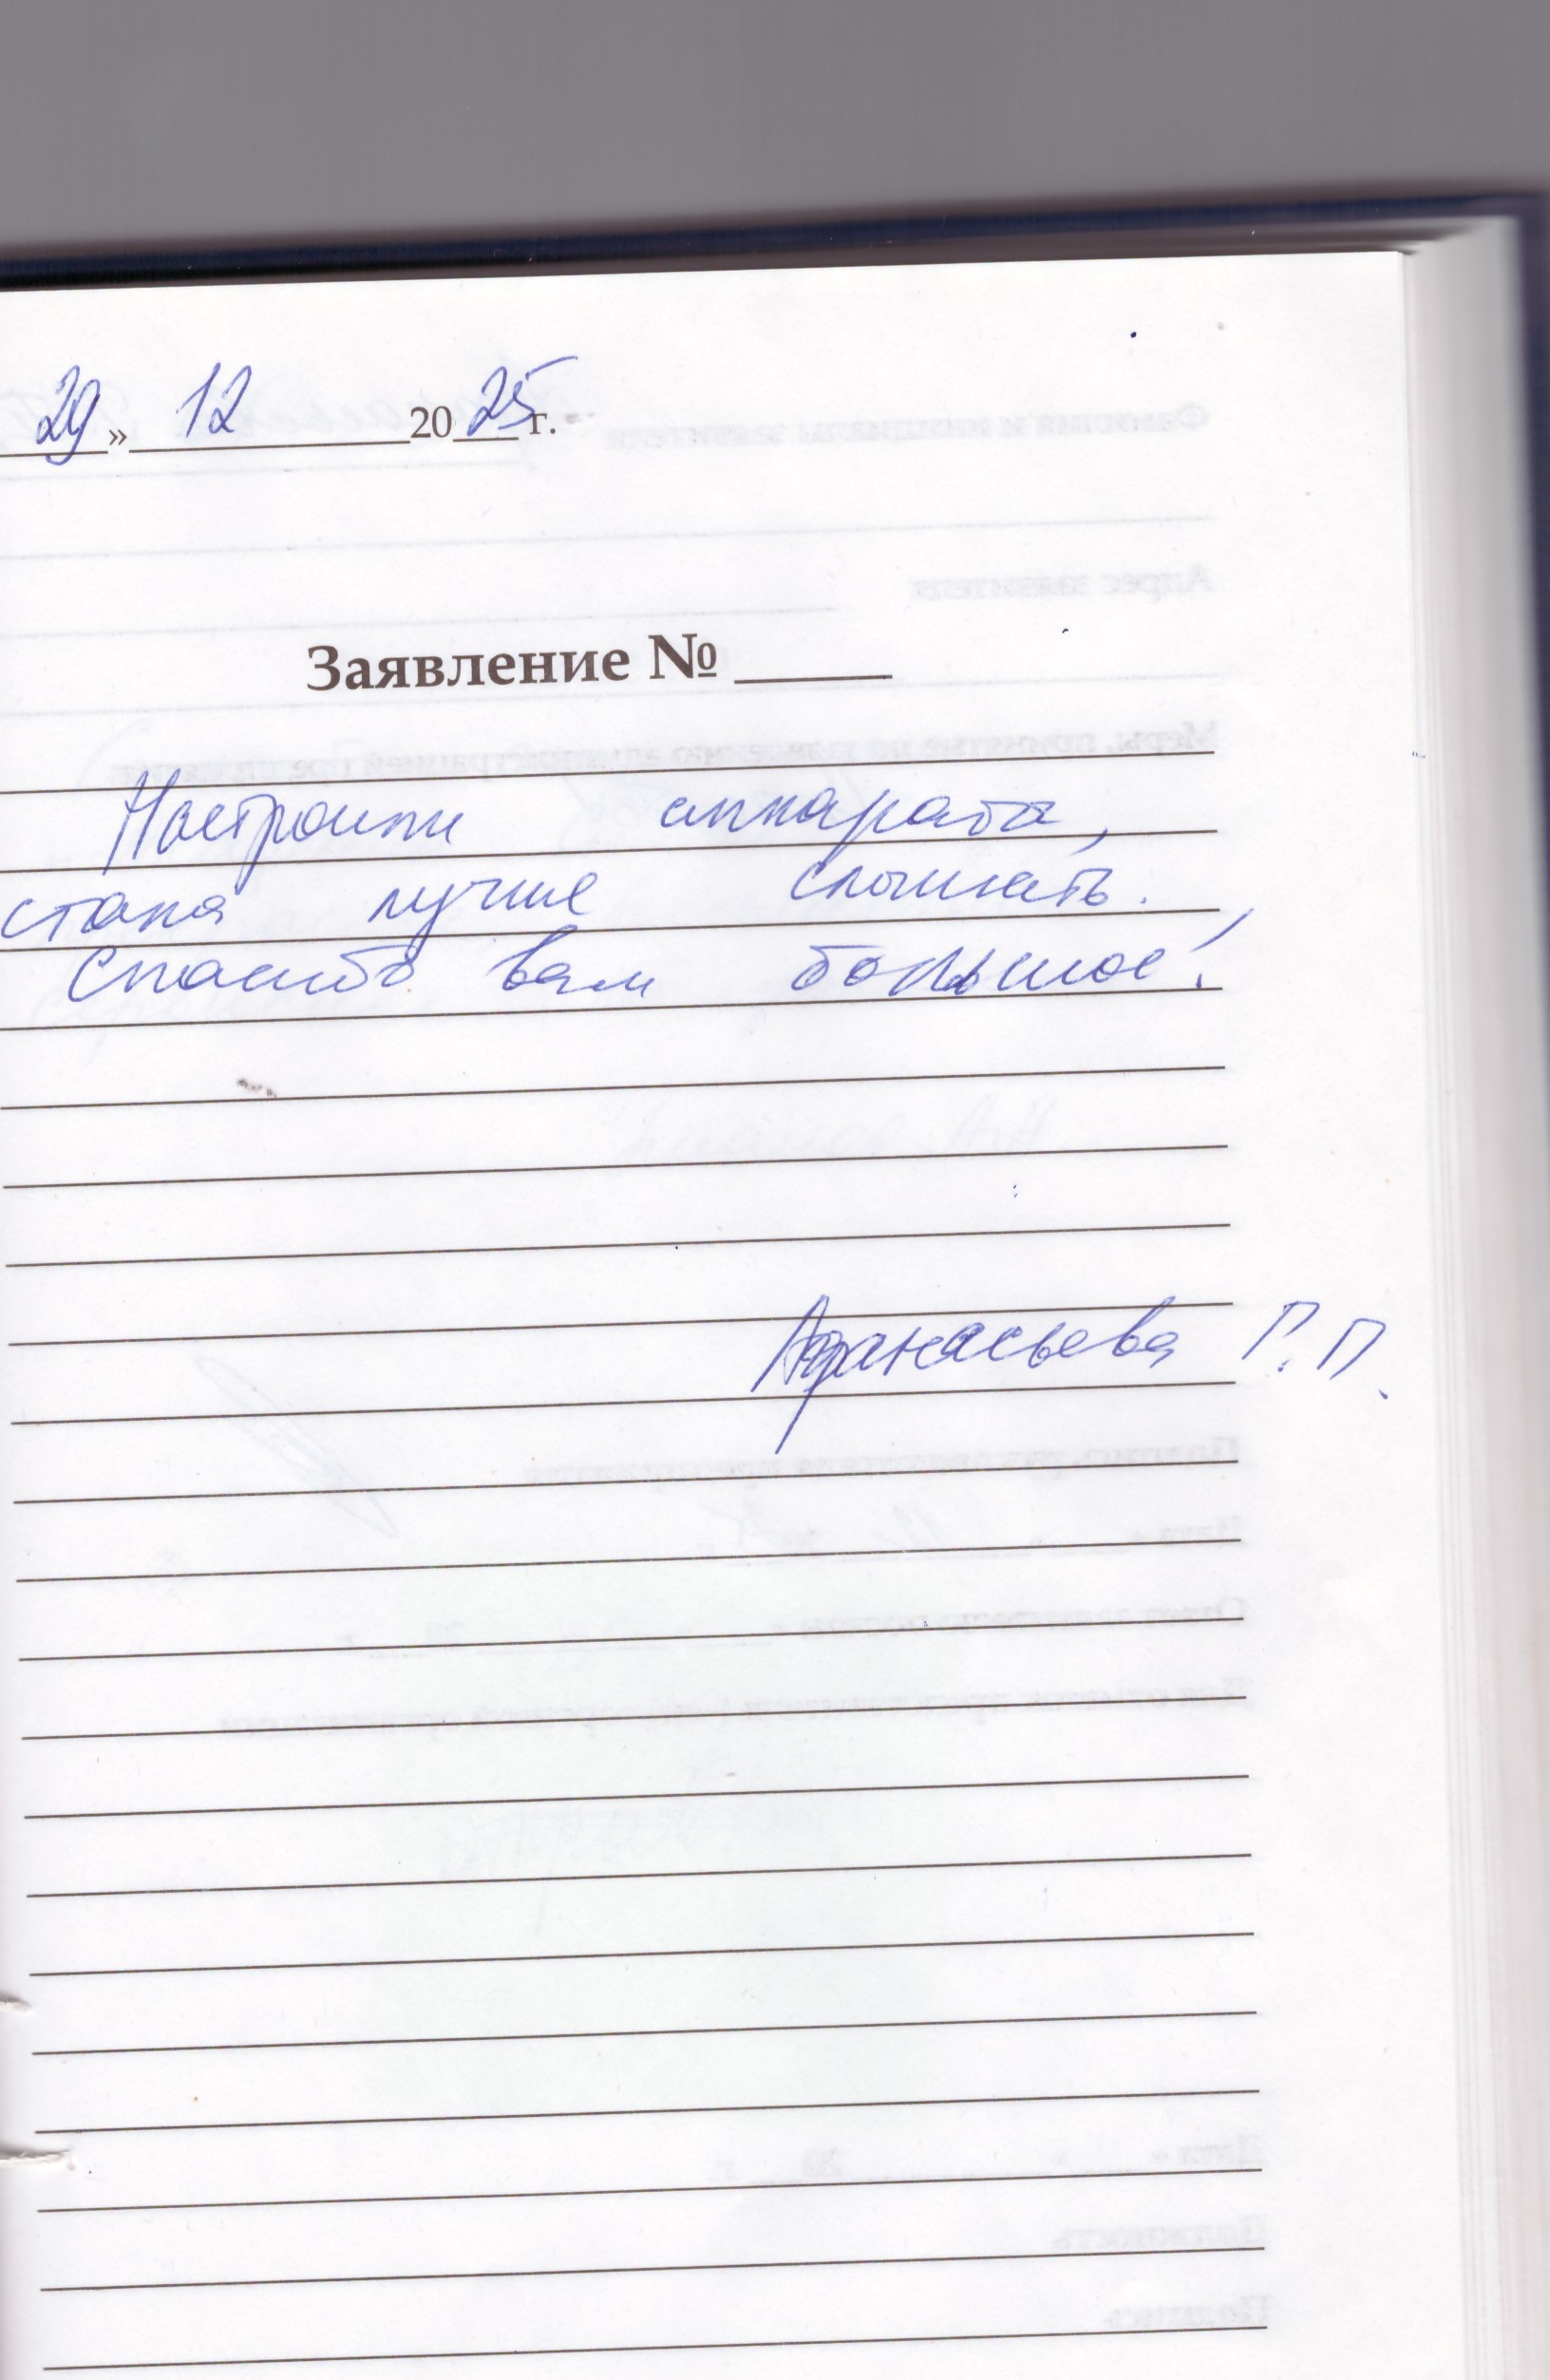 29 » 12 2025 г.
Заявление № ____
Настроили аппарата,
стала лучше слышать.
Спасибо вам большое!
Афанасьева Г. П.